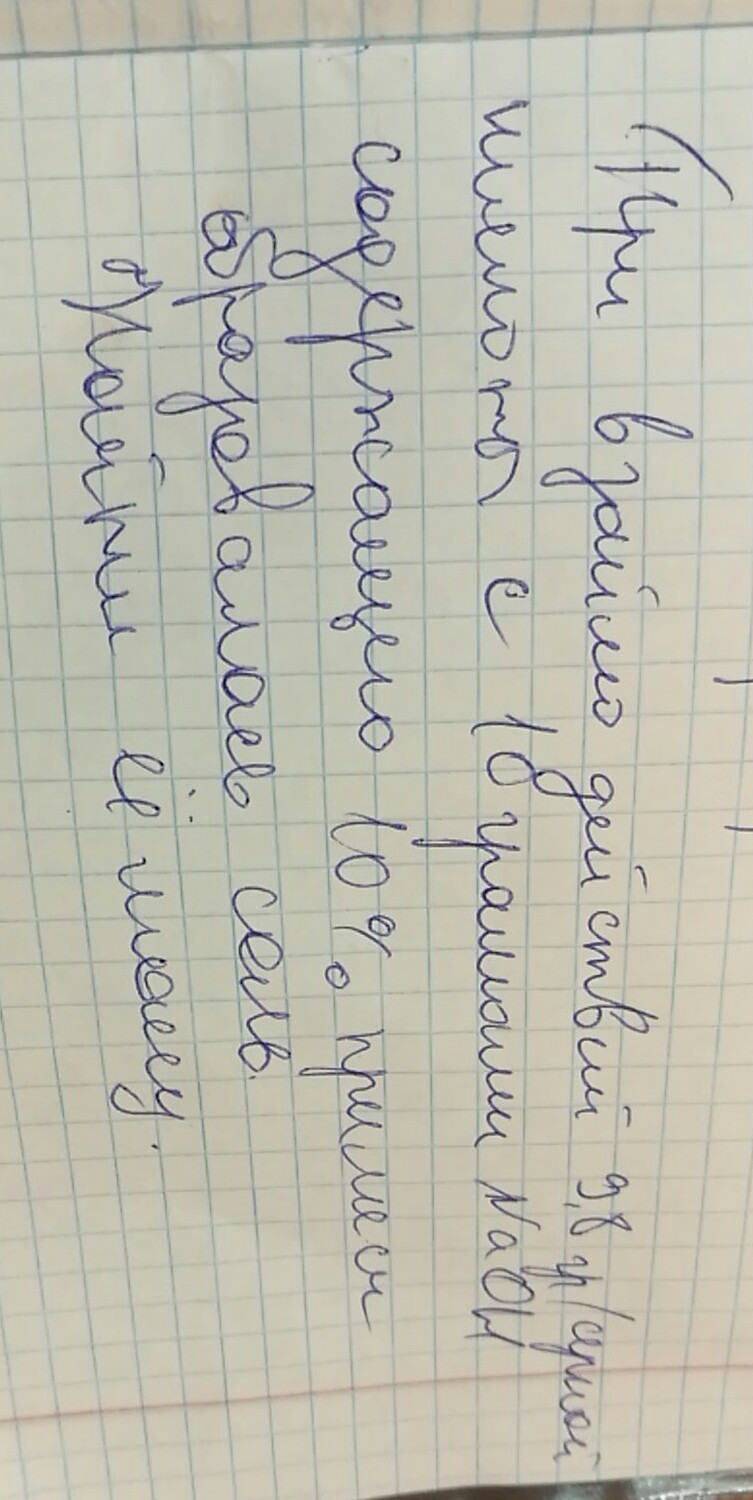 При взаймо действий 9,8 гр/серной
кислоты с 10 граммами NaOH
содержащего 10% примеси
образовалась соль.
Найти её массу.